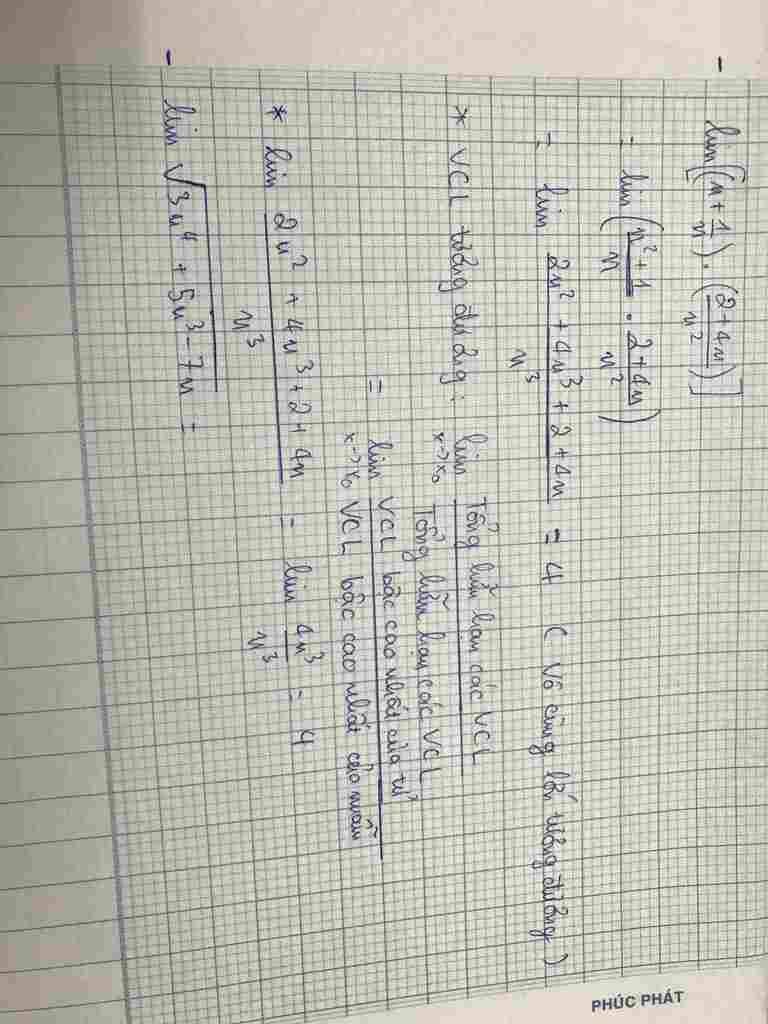 lim[(n + 1/n) . (2 + 4n / n²)]
= lim(n² + 1 / n . 2 + 4n / n²)
= lim 2n² + 4n³ + 2 + 4n / n³ = 4 ( Vô cùng lớn tương đương )
* VCL tương đương : lim x→x₀ Tổng hữu hạn các VCL / Tổng hữu hạn các VCL
= lim x→x₀ VCL bậc cao nhất của tử / VCL bậc cao nhất của mẫu
* lim 2n² + 4n³ + 2 + 4n / n³ = lim 4n³ / n³ = 4
lim √3n⁴ + 5n³ - 7n =
PHÚC PHÁT